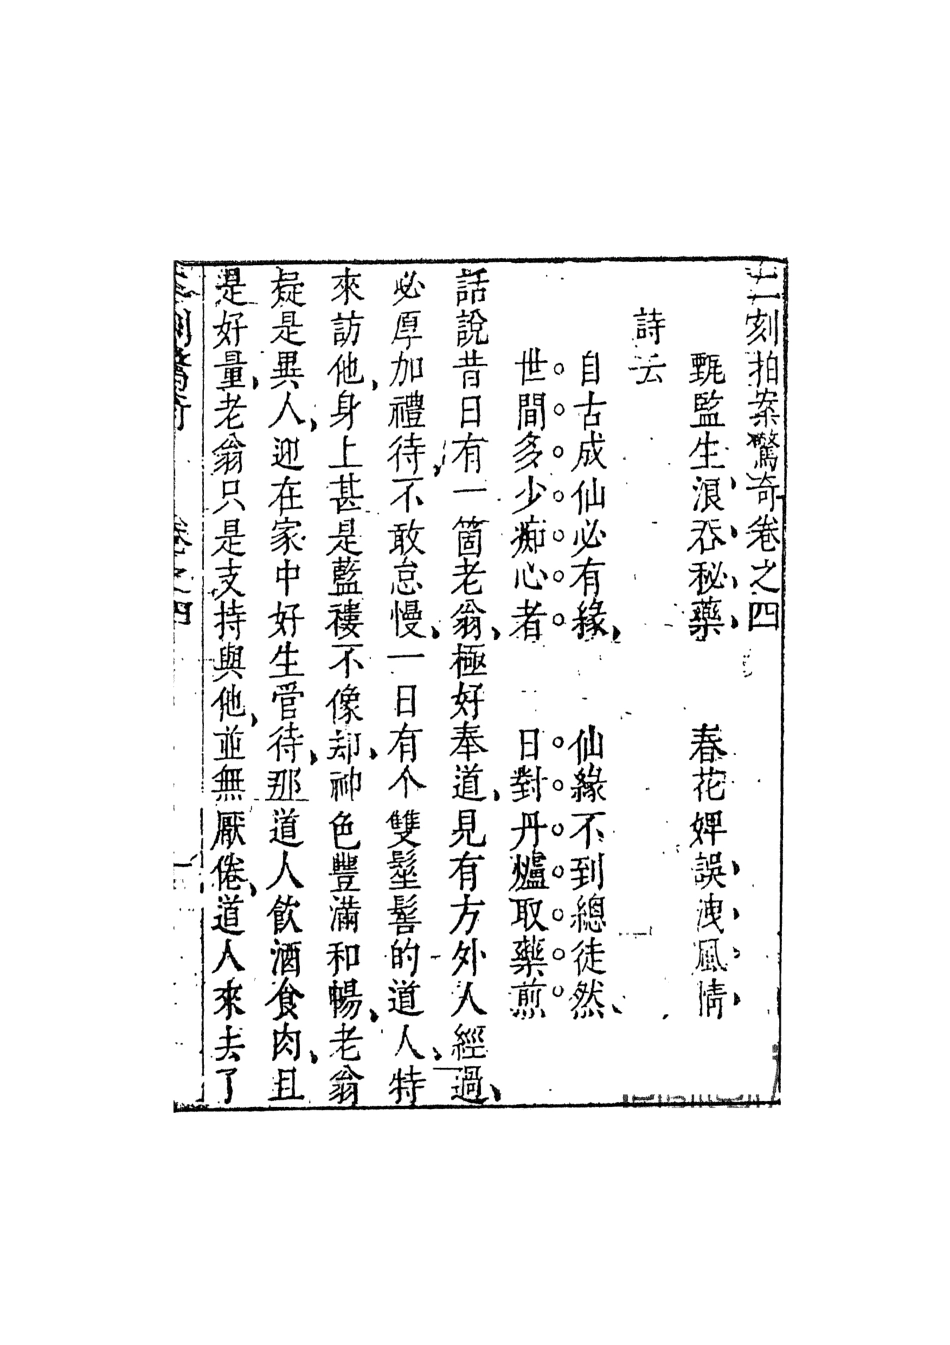 二刻拍案驚奇卷之四
甄監生浪吞秘藥　春花婢誤洩風情
詩云
自古成仙必有緣　仙緣不到總徒然
世間多少痴心者　日對丹爐取藥煎
話說昔日有一箇老翁極好奉道見有方外人經過
必厚加禮待不敢怠慢一日有个雙髽髻的道人特
來訪他身上甚是藍褸不像却神色豐滿和暢老翁
疑是異人迎在家中好生管待那道人飲酒食肉且
是好量老翁只是支持與他並無厭倦道人來去了
卷之四